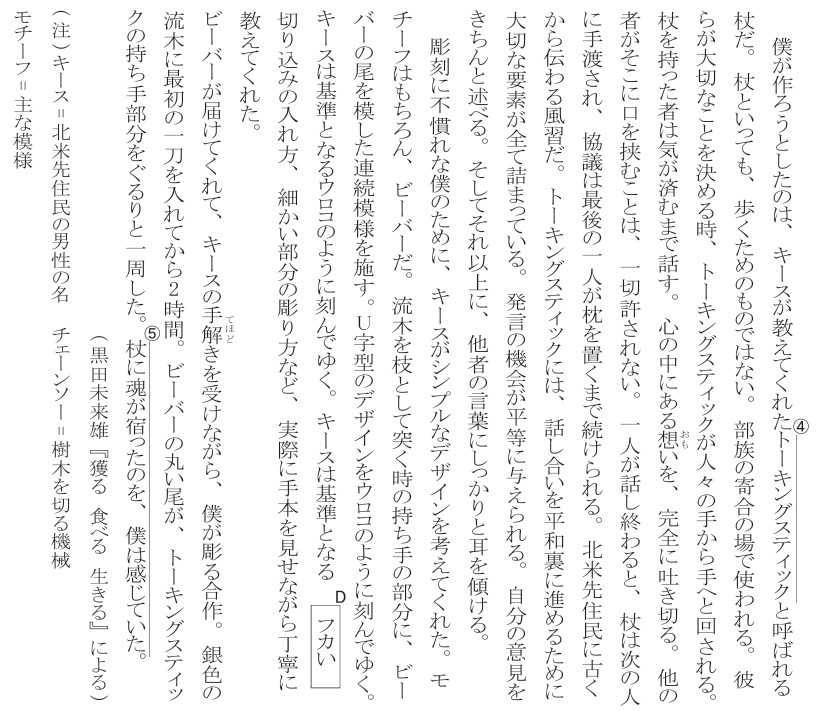 僕が作ろうとしたのは、キースが教えてくれた④トーキングスティックと呼ばれる
杖だ。杖といっても、歩くためのものではない。部族の寄合の場で使われる。彼
らが大切なことを決める時、トーキングスティックが人々の手から手へと回される。
杖を持った者は気が済むまで話す。心の中にある想おもいを、完全に吐き切る。他の
者がそこに口を挟むことは、一切許されない。一人が話し終わると、杖は次の人
に手渡され、協議は最後の一人が枕を置くまで続けられる。北米先住民に古く
から伝わる風習だ。トーキングスティックには、話し合いを平和裏に進めるために
大切な要素が全て詰まっている。発言の機会が平等に与えられる。自分の意見を
きちんと述べる。そしてそれ以上に、他者の言葉にしっかりと耳を傾ける。
彫刻に不慣れな僕のために、キースがシンプルなデザインを考えてくれた。モ
チーフはもちろん、ビーバーだ。流木を枝として突く時の持ち手の部分に、ビー
バーの尾を模した連続模様を施す。U字型のデザインをウロコのように刻んでゆく。
キースは基準となるウロコのように刻んでゆく。キースは基準となる D フカい
切り込みの入れ方、細かい部分の彫り方など、実際に手本を見せながら丁寧に
教えてくれた。
ビーバーが届けてくれて、キースの手解てほどきを受けながら、僕が彫る合作。銀色の
流木に最初の一刀を入れてから2時間。ビーバーの丸い尾が、トーキングスティッ
クの持ち手部分をぐるりと一周した。⑤杖に魂が宿ったのを、僕は感じていた。
（黒田未来雄『獲る 食べる 生きる』による）
（注）キース＝北米先住民の男性の名 チェーンソー＝樹木を切る機械
モチーフ＝主な模様